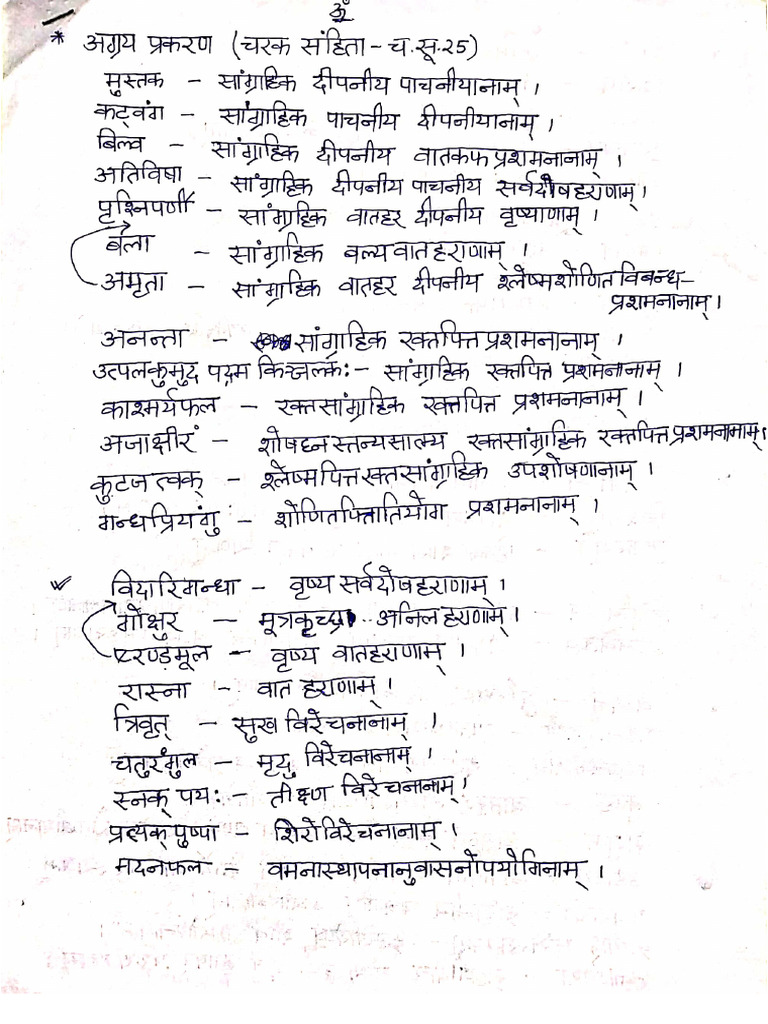 ॐ
* अग्रय प्रकरण (चरक संहिता - च.सू.25)
मुस्तक - सांग्राहिक दीपनीय पाचनीयानाम् ।
कट्वंग - सांग्राहिक पाचनीय दीपनीयानाम् ।
बिल्व - सांग्राहिक दीपनीय वातकफ प्रशमनानाम् ।
अतिविषा - सांग्राहिक दीपनीय पाचनीय सर्वदोषहराणाम् ।
पृश्निपर्णी - सांग्राहिक वातहर दीपनीय वृष्याणाम् ।
बला - सांग्राहिक बल्य वातहराणाम् ।
अमृता - सांग्राहिक वातहर दीपनीय श्लेष्मशोणित विबन्ध-
प्रशमनानाम् ।
अनन्ता - सांग्राहिक रक्तपित्त प्रशमनानाम् ।
उत्पलकुमुद पद्म किञ्जल्कः - सांग्राहिक रक्तपित्त प्रशमनानाम् ।
काश्मर्यफल - रक्तसांग्राहिक रक्तपित्त प्रशमनानाम् ।
अजाक्षीरं - शोषघ्न स्तन्यसात्म्य रक्तसांग्राहिक रक्तपित्त प्रशमनानाम् ।
कुटज त्वक् - श्लेष्म पित्त रक्त सांग्राहिक उपशोषणानाम् ।
गन्धप्रियंगु - शोणितपित्तातियोग प्रशमनानाम् ।
विदारिगन्धा - वृष्य सर्वदोषहराणाम् ।
गोक्षुर - मूत्रकृच्छ्र अनिलहराणाम् ।
एरण्डमूल - वृष्य वातहराणाम् ।
रास्ना - वात हराणाम् ।
त्रिवृत् - सुख विरेचनानाम् ।
चतुरंगुल - मृदु विरेचनानाम् ।
स्नक् पयः - तीक्ष्ण विरेचनानाम् ।
प्रत्यक् पुष्पा - शिरोविरेचनानाम् ।
मदनफल - वमनास्थापनानुवासनोपयोगिनाम् ।